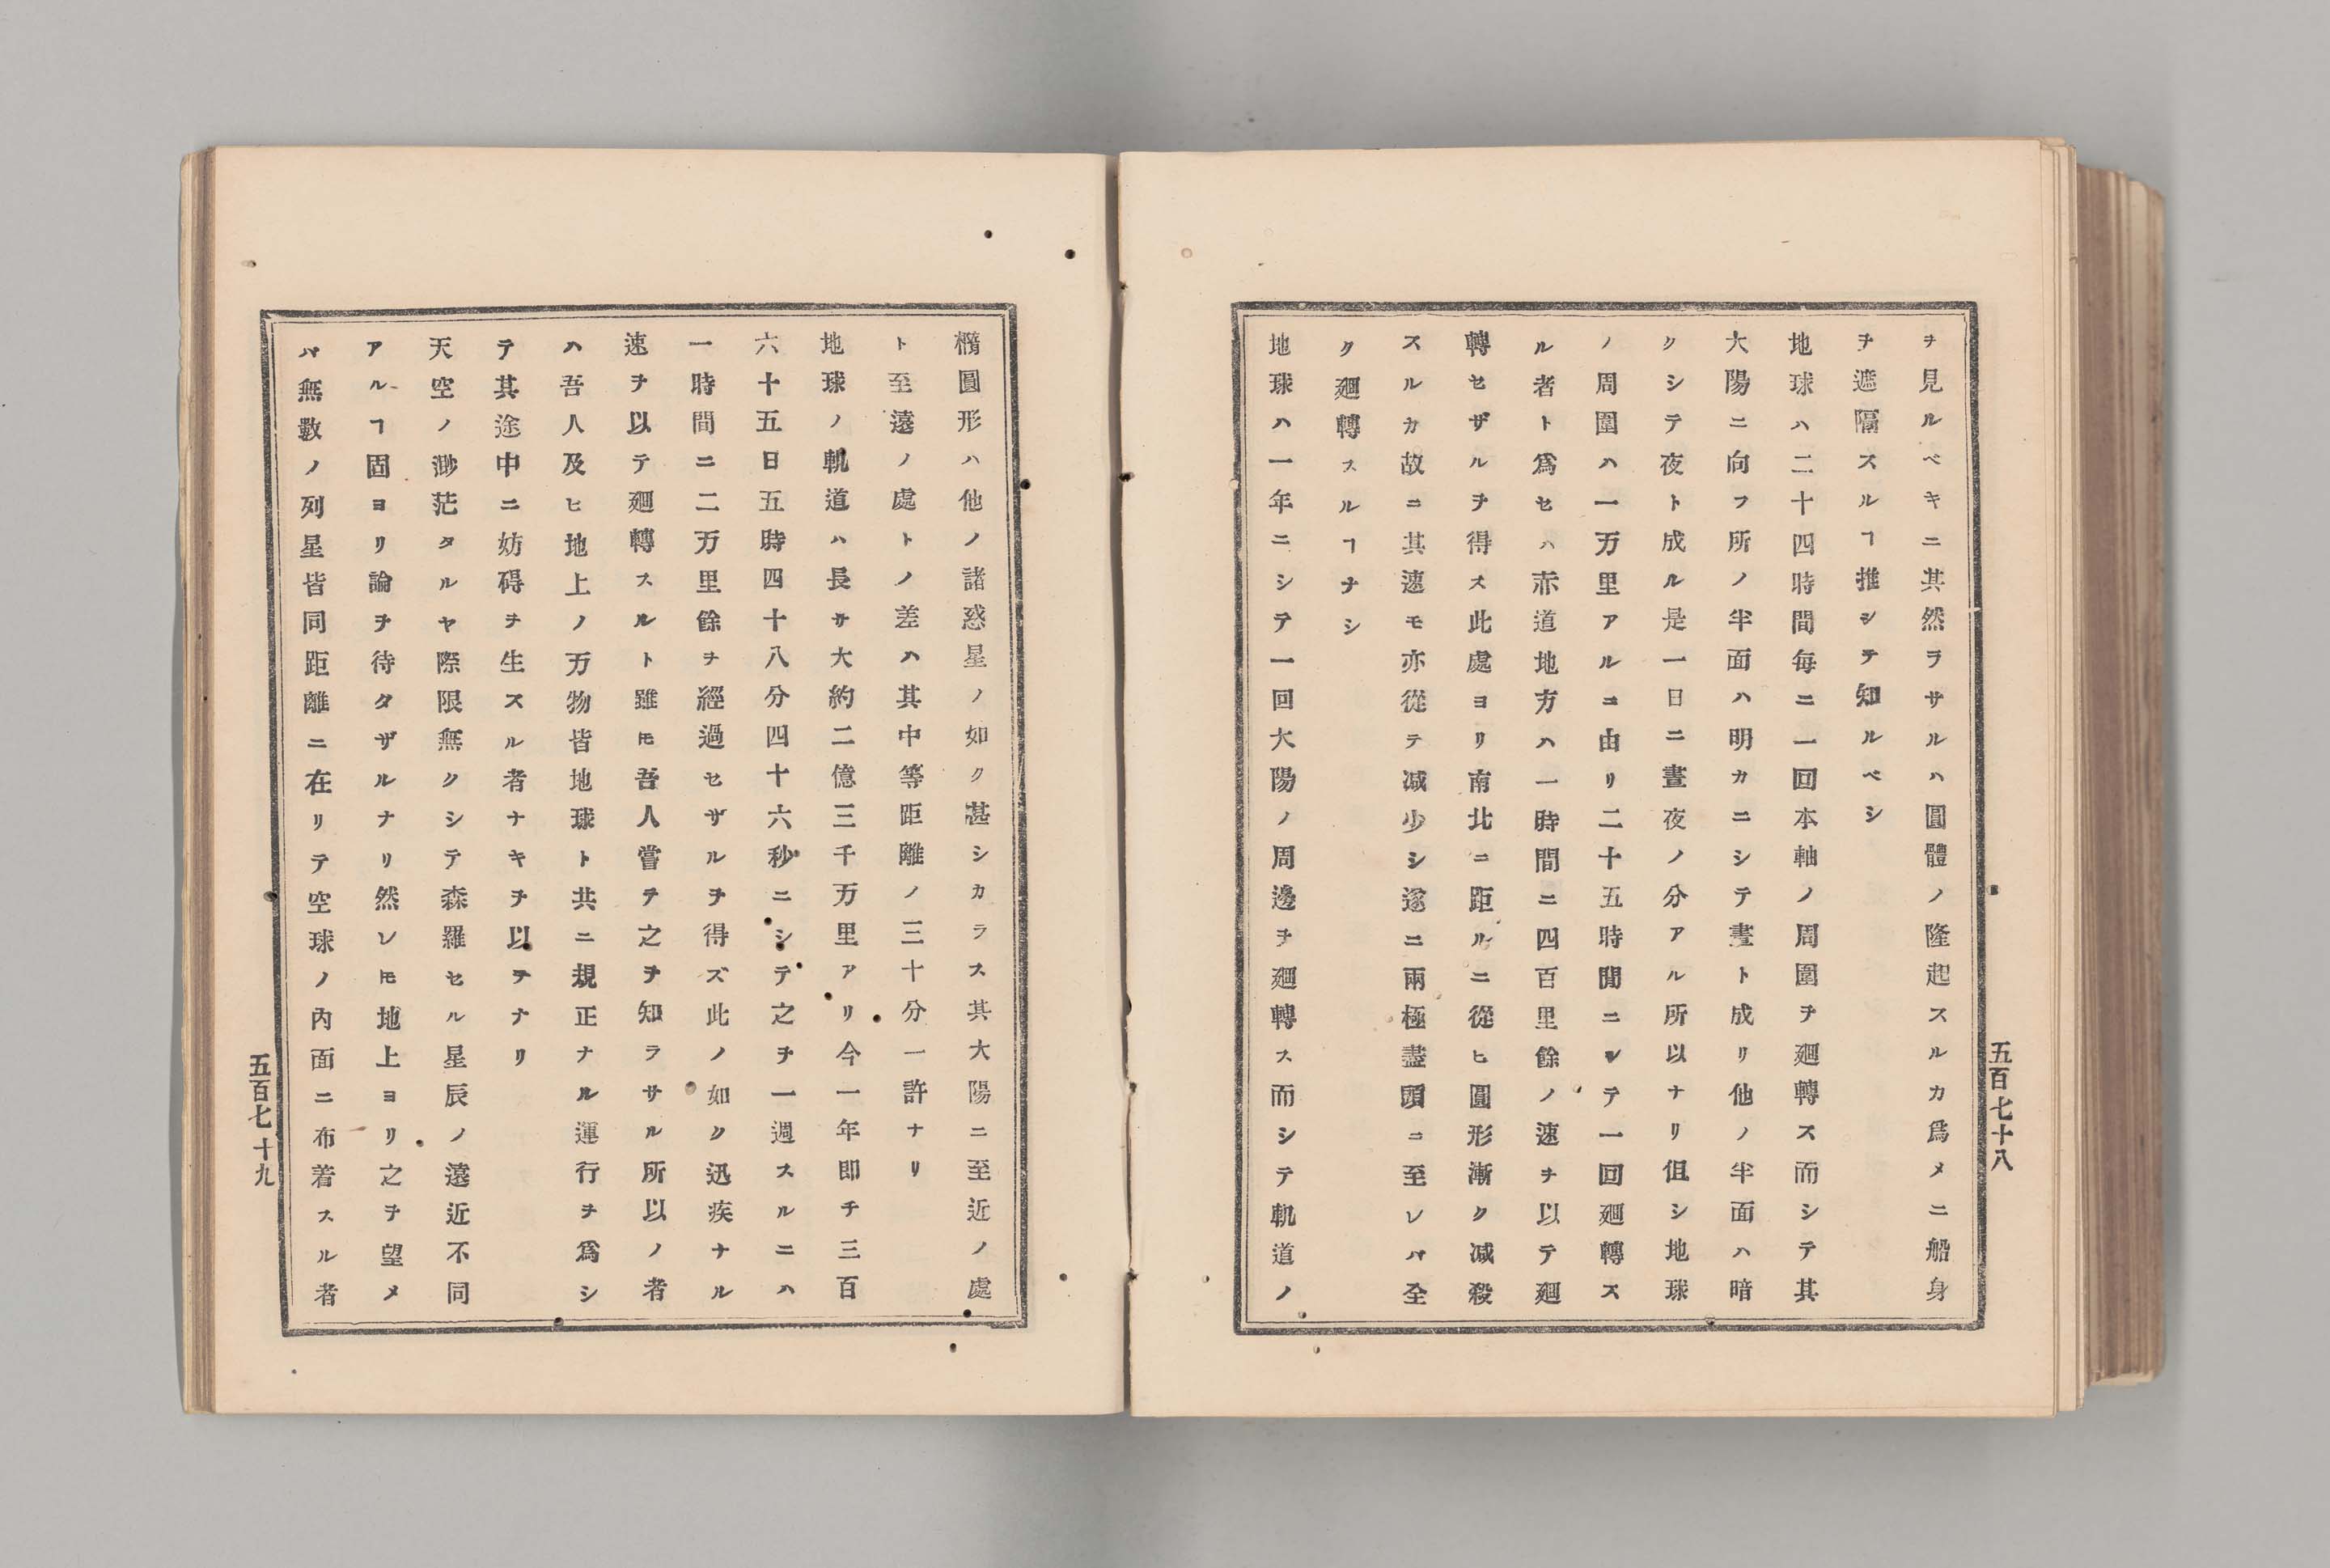 ヲ見ルベキニ其然ラサルハ圓體ノ隆起スルカ爲メニ船身
ヲ遮隔スルヿ推シテ知ルベシ
地球ハ二十四時間每ニ一回本軸ノ周圍ヲ廻轉ス而シテ其
大陽ニ向フ所ノ半面ハ明カニシテ晝ト成リ他ノ半面ハ暗
クシテ夜ト成ル是一日ニ晝夜ノ分アル所以ナリ但シ地球
ノ周圍ハ一万里アルニ由リ二十五時間ニシテ一回廻轉ス
ル者ト爲セハ赤道地方ハ一時間ニ四百里餘ノ速ヲ以テ廻
轉セザルヲ得ス此處ヨリ南北ニ距ルニ從ヒ圓形漸ク减殺
スルカ故ニ其速モ亦從テ减少シ遂ニ兩極盡頭ニ至レバ全
ク廻轉スルヿナシ
地球ハ一年ニシテ一回大陽ノ周邊ヲ廻轉ス而シテ軌道ノ
五百七十八
橢圓形ハ他ノ諸惑星ノ如ク甚シカラス其大陽ニ至近ノ處
ト至遠ノ處トノ差ハ其中等距離ノ三十分一許ナリ
地球ノ軌道ハ長サ大約二億三千万里アリ今一年即チ三百
六十五日五時四十八分四十六秒ニシテ之ヲ一週スルニハ
一時間ニ二万里餘ヲ經過セザルヲ得ズ此ノ如ク迅疾ナル
速ヲ以テ廻轉スルト雖𪜈吾人嘗テ之ヲ知ラサル所以ノ者
ハ吾人及ヒ地上ノ万物皆地球ト共ニ規正ナル運行ヲ爲シ
テ其途中ニ妨碍ヲ生スル者ナキヲ以テナリ
天空ノ渺茫タルヤ際限無クシテ森羅セル星辰ノ遠近不同
アルヿ固ヨリ論ヲ待タザルナリ然レ𪜈地上ヨリ之ヲ望メ
バ無數ノ列星皆同距離ニ在リテ空球ノ內面ニ布着スル者
五百七十九